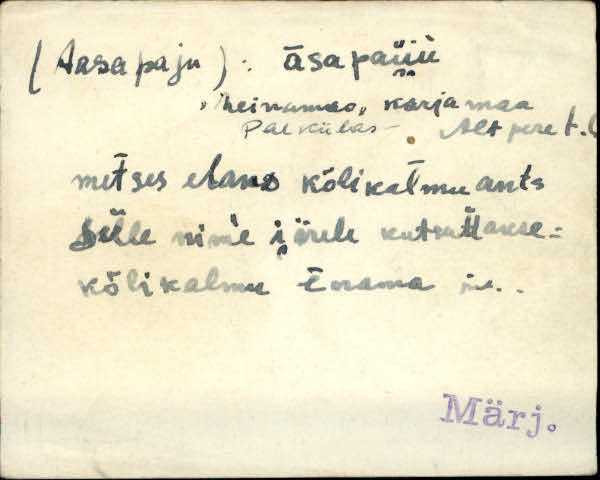 (Aasapaju): āsapaiiu
, heinamaa, karjamaa
Paekülas - Altpere t.
metses elans kõlikalmu ants
Sēlle nime järele kutsuttakse -
kõlikalmu ēnama
Märj.